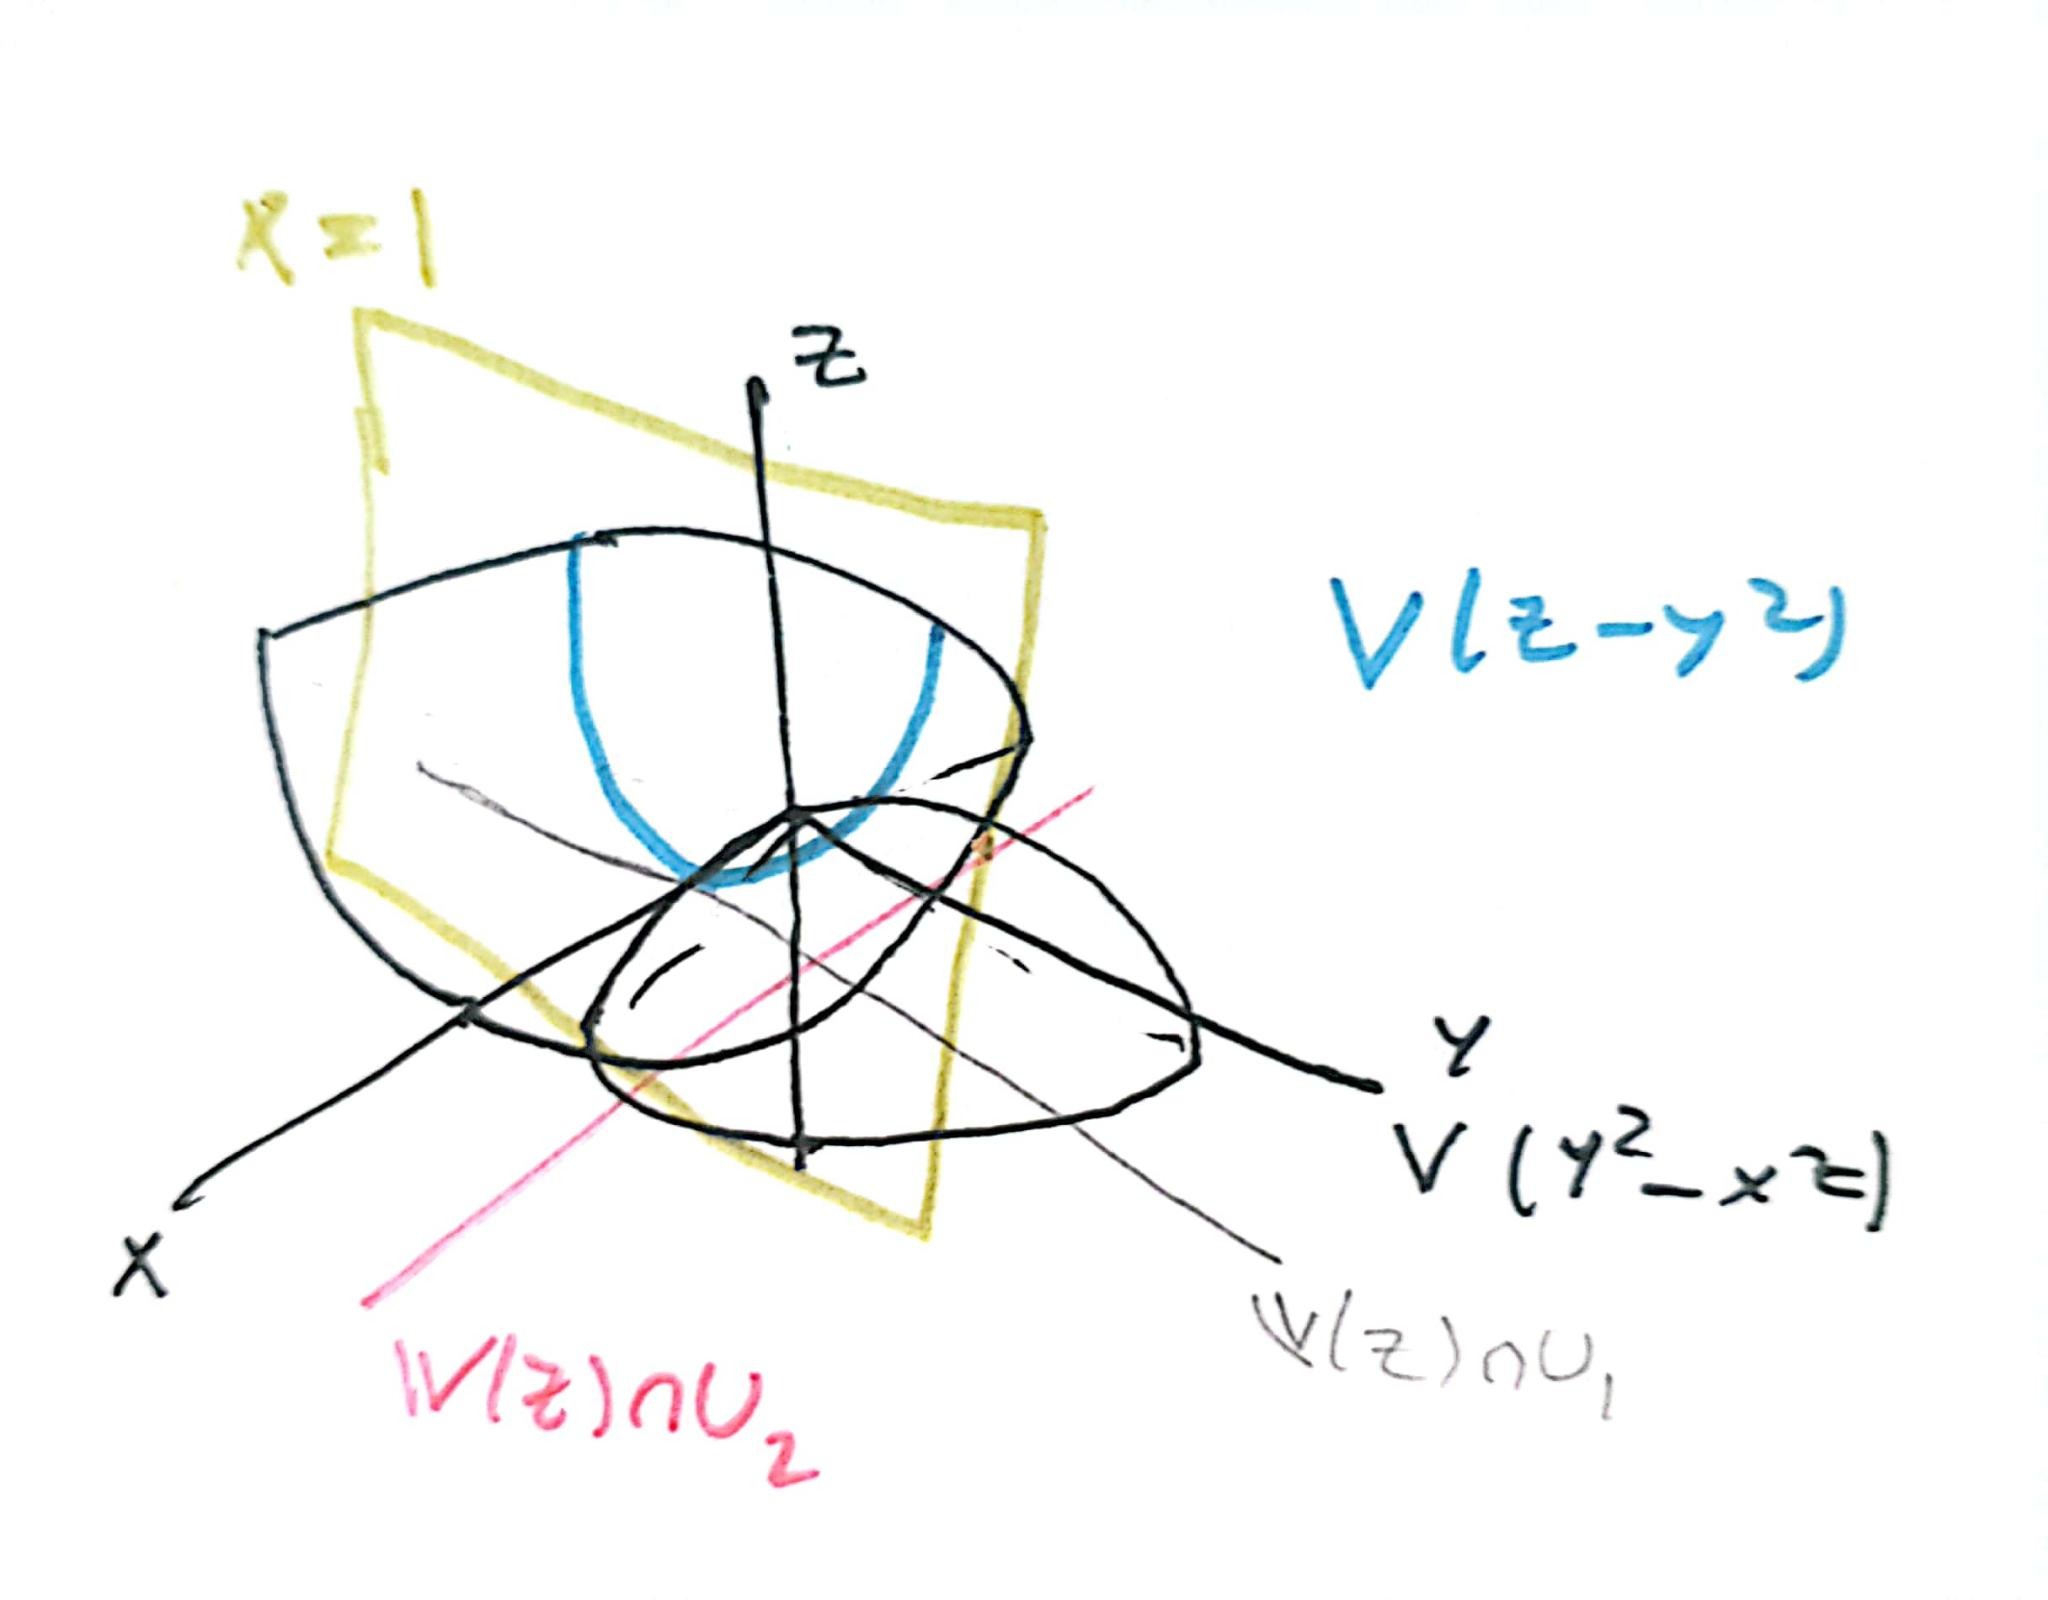 x=1
z
V(z-y²)
y
V(y²-xz)
x
V(z)∩U₁
V(z)∩U₂